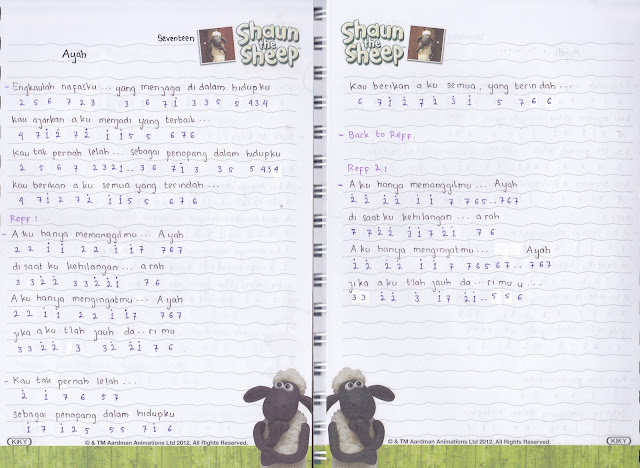 Seventeen
Shaun the Sheep
Ayah
- Engkaulah nafasku... yang menjaga di dalam hidupku
2 5 6 7 2 3 3 6 7 i 3 3 5 5 4 3 4
kau ajarkan aku menjadi yang terbaik...
4 7 i 2 7 i i i 5 5 6 7 6
kau tak pernah lelah... sebagai penopang dalam hidupku
2 5 6 7 2 3 2 i.. 3 6 7 i 3 3 5 5 4 3 4
kau berikan aku semua yang terindah...
4 7 i 2 7 2 i i 5 5 6 7 6
Reff :
- Aku hanya memanggilmu... Ayah
2 2 i i 2 2 i i 7 7 6 7
di saat ku kehilangan... arah
3 3 2 2 3 3 2 2 i 7 6
Aku hanya mengingatmu... Ayah
2 2 i i 2 2 i i 7 7 6 7
jika aku t'lah jauh da.. ri mu
3 3 2 2 3 3 2 2 i 7 6
- Kau tak pernah lelah...
2 i 7 6 5 7
sebagai penopang dalam hidupku
i 7 i 2 5 5 5 7 i 6
KIKY
© & TM Aardman Animations Ltd 2012. All Rights Reserved.
Shaun the Sheep
kau berikan aku semua, yang terindah...
6 7 i 2 7 2 3 i 5 7 6 6
- Back to Reff.
Reff 2 :
- Aku hanya memanggilmu... Ayah
2 2 i 2 i i 7 7 6 5.. 7 6 7
di saat ku kehilangan... arah
7 7 2 2 3 i 7 2 i 7 6
Aku hanya mengingatmu... Ayah
2 2 2 2 i i 7 7 6 5 6 7.. 7 6 7
jika aku t'lah jauh da.. rimu.u...
3 3 2 2 3 i 7 2 i.. 5 5 6
© & TM Aardman Animations Ltd 2012. All Rights Reserved.
KIKY